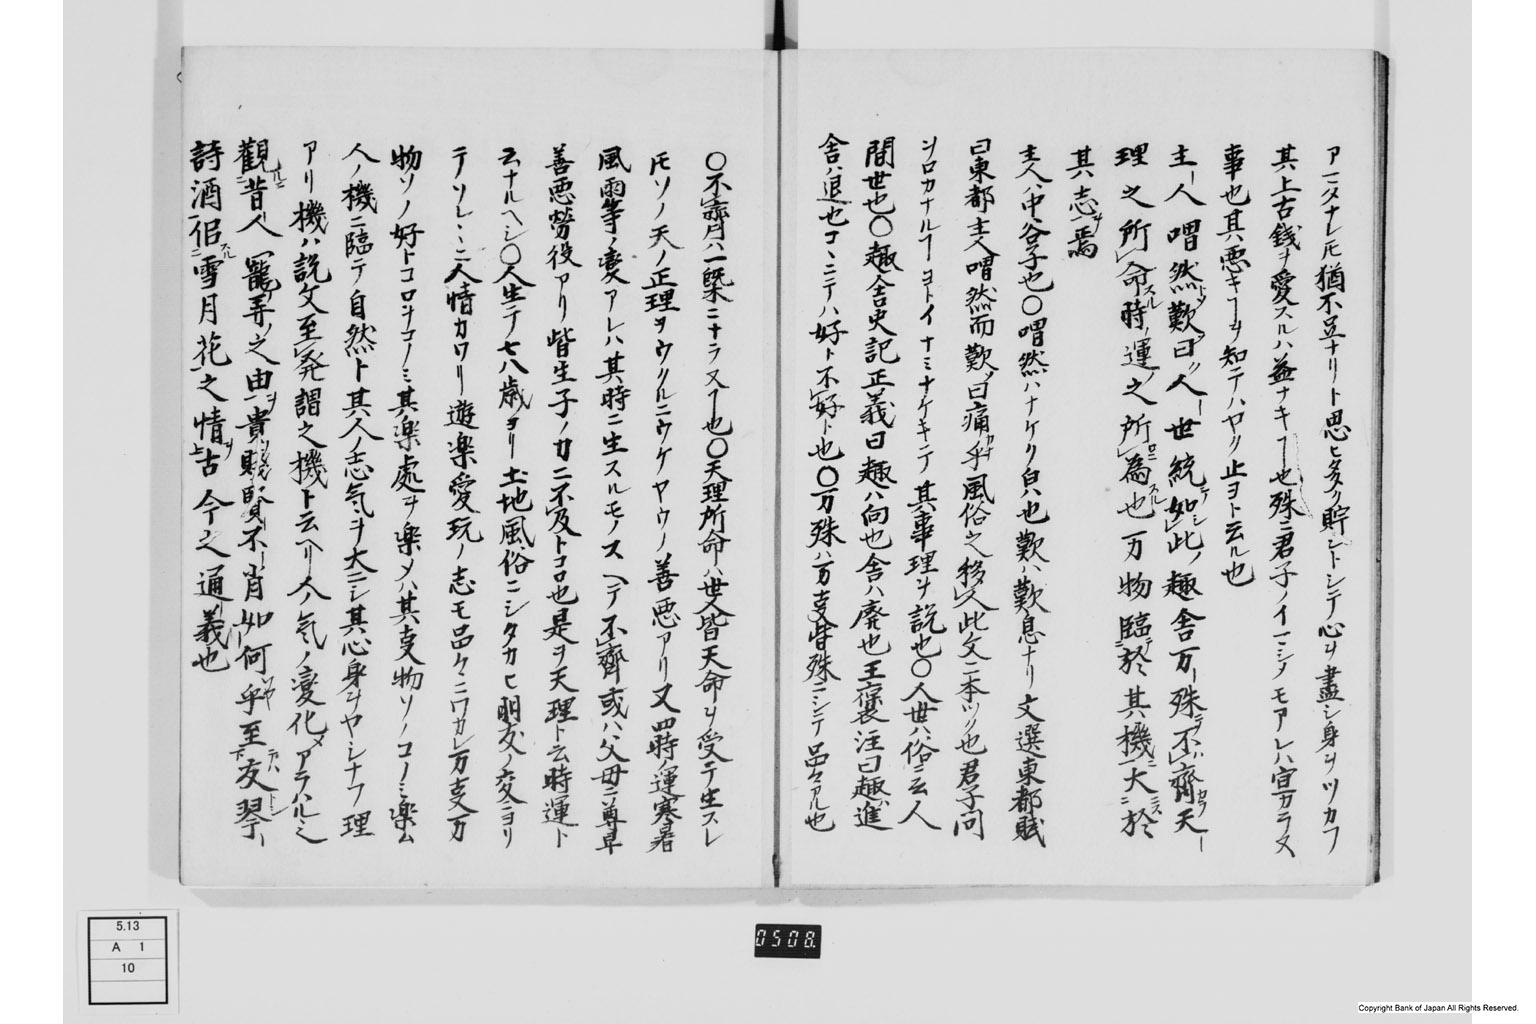 アマタナレ𪜈猶不足ナリト思ヒ多ク貯ントシテ心ヲ盡シ身ヲツカフ
其上古銭ヲ愛スルハ益ナキヿ也殊ニ君子ノイマシメモアレハ宜カラヌ
事也其悪キヿヲ知テハヤク止ヨト云ル也
主人喟然歎曰人世統如此ノ趣舎万殊不齊天
理之所命時運之所為也万物臨於其機大於
其志焉
主人ハ中谷子也〇喟然ハナケク皃也歎ハ歎息ナリ文選東都賦
曰東都主人喟然而歎曰痛乎風俗之移人此文ニ本ツク也君子問
ソロカナルヿヨトイナミナケキテ其事理ヲ説也〇人世ハ俗ニ云人
間世也〇趣舎史記正義曰趣ハ向也舎ハ廃也王襃注曰趣ハ進
舎ハ退也コヽニテハ好ト不好ト也〇万殊ハ万支皆殊ニシテ品々アル也
〇不齊ハ一槩ニナラヌヿ也〇天理所命ハ世人皆天命ヲ受テ生スレ
𪜈ソノ天ノ正理ヲウクルニウケヤウノ善悪アリ又四時ノ運寒暑
風雨等ノ変アレハ其時ニ生スルモノスヘテ不齊或ハ父母ニ尊卑
善悪勞役アリ皆生子ノ力ニ不及トコロ也是ヲ天理ト云時運ト
云ナルヘシ〇人生テ七八歳ヨリ土地風俗ニシタカヒ朋友ノ交ヨリ
テソレ〳〵ニ人情カワリ遊楽愛玩ノ志モ品々ニワカレ万支万
物ソノ好トコロヲコノミ其楽處ヲ楽メハ其支物ソノコノミ楽ム
人ノ機ニ臨テ自然ト其人ノ志気ヲ大ニシ其心身ヲヤシナフ理
アリ機ハ説文至発謂之機ト云ヘリ人ノ気ノ變化メアラハルヽ也
觀昔人寵弄之由貴賎賢不肖如何乎至友琴
詩酒侶雪月花之情古今之通義也
5.13
A 1
10
0508.
Copyright Bank of Japan All Rights Reserved.